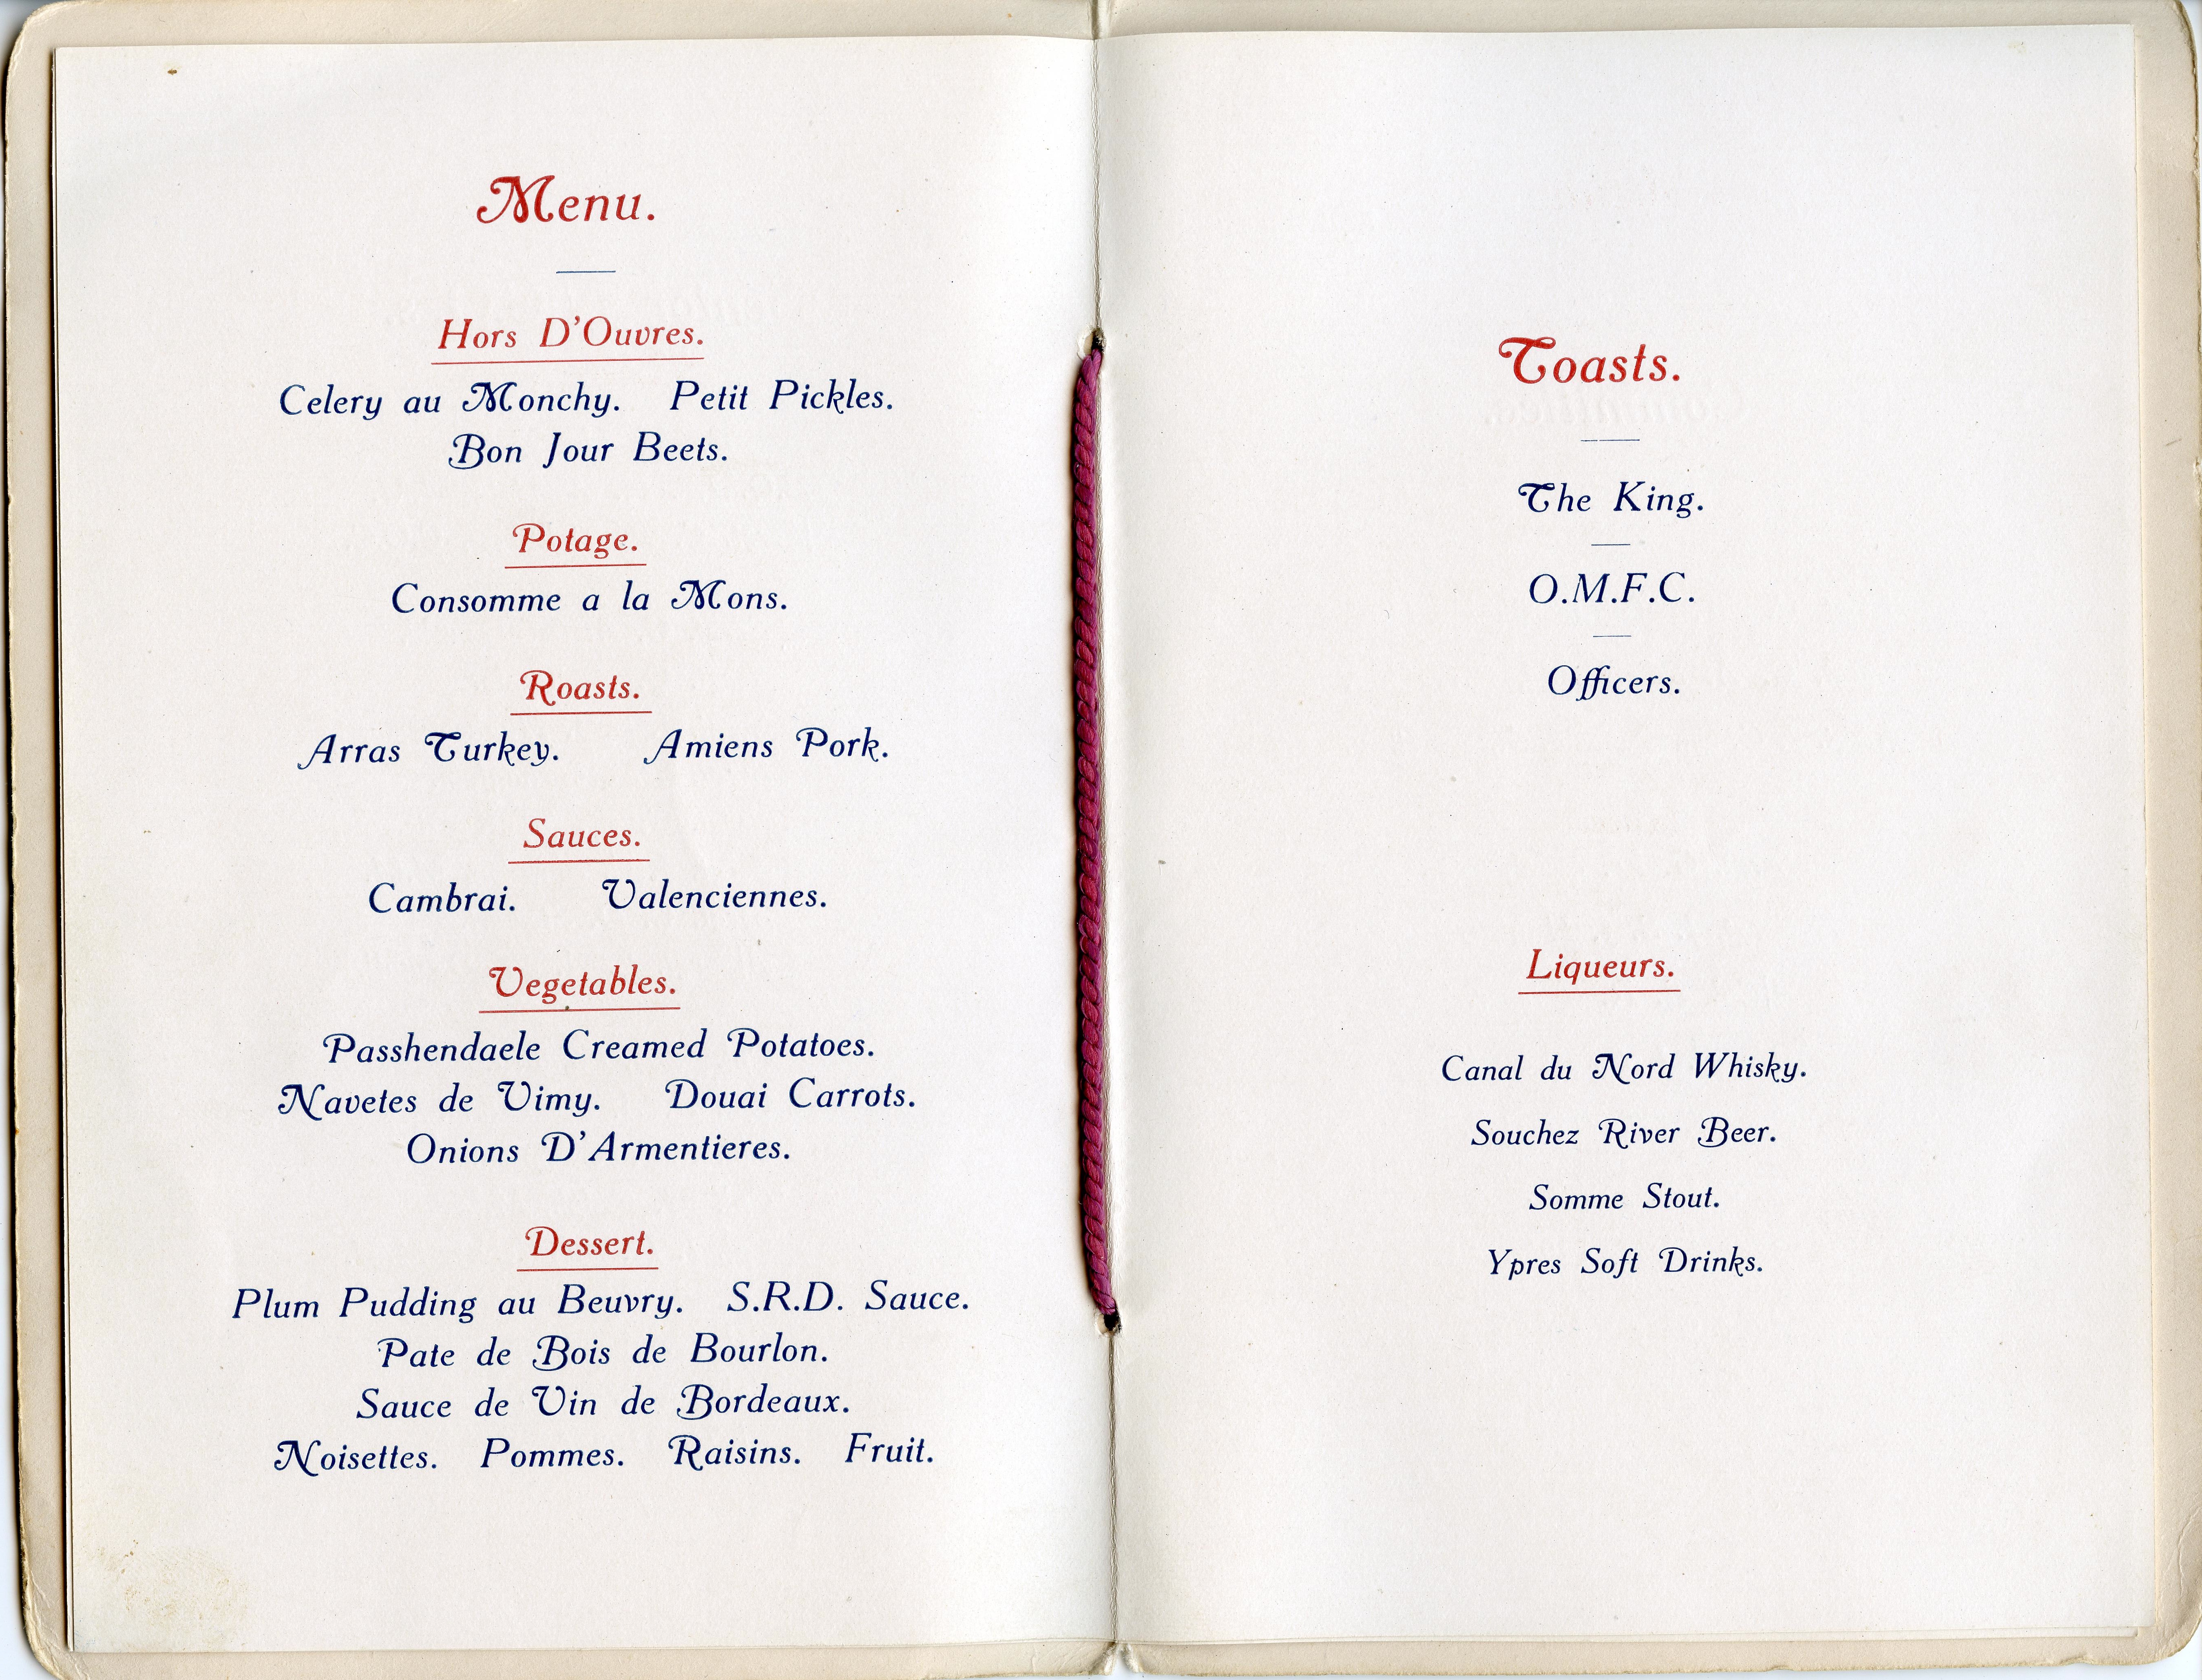 Menu.
Hors D'Ouvres.
Celery au Monchy. Petit Pickles.
Bon Jour Beets.
Potage.
Consomme a la Mons.
Roasts.
Arras Turkey. Amiens Pork.
Sauces.
Cambrai. Valenciennes.
Vegetables.
Passhendaele Creamed Potatoes.
Navetes de Vimy. Douai Carrots.
Onions D'Armentieres.
Dessert.
Plum Pudding au Beuvry. S.R.D. Sauce.
Pate de Bois de Bourlon.
Sauce de Vin de Bordeaux.
Noisettes. Pommes. Raisins. Fruit.
Toasts.
The King.
O.M.F.C.
Officers.
Liqueurs.
Canal du Nord Whisky.
Souchez River Beer.
Somme Stout.
Ypres Soft Drinks.